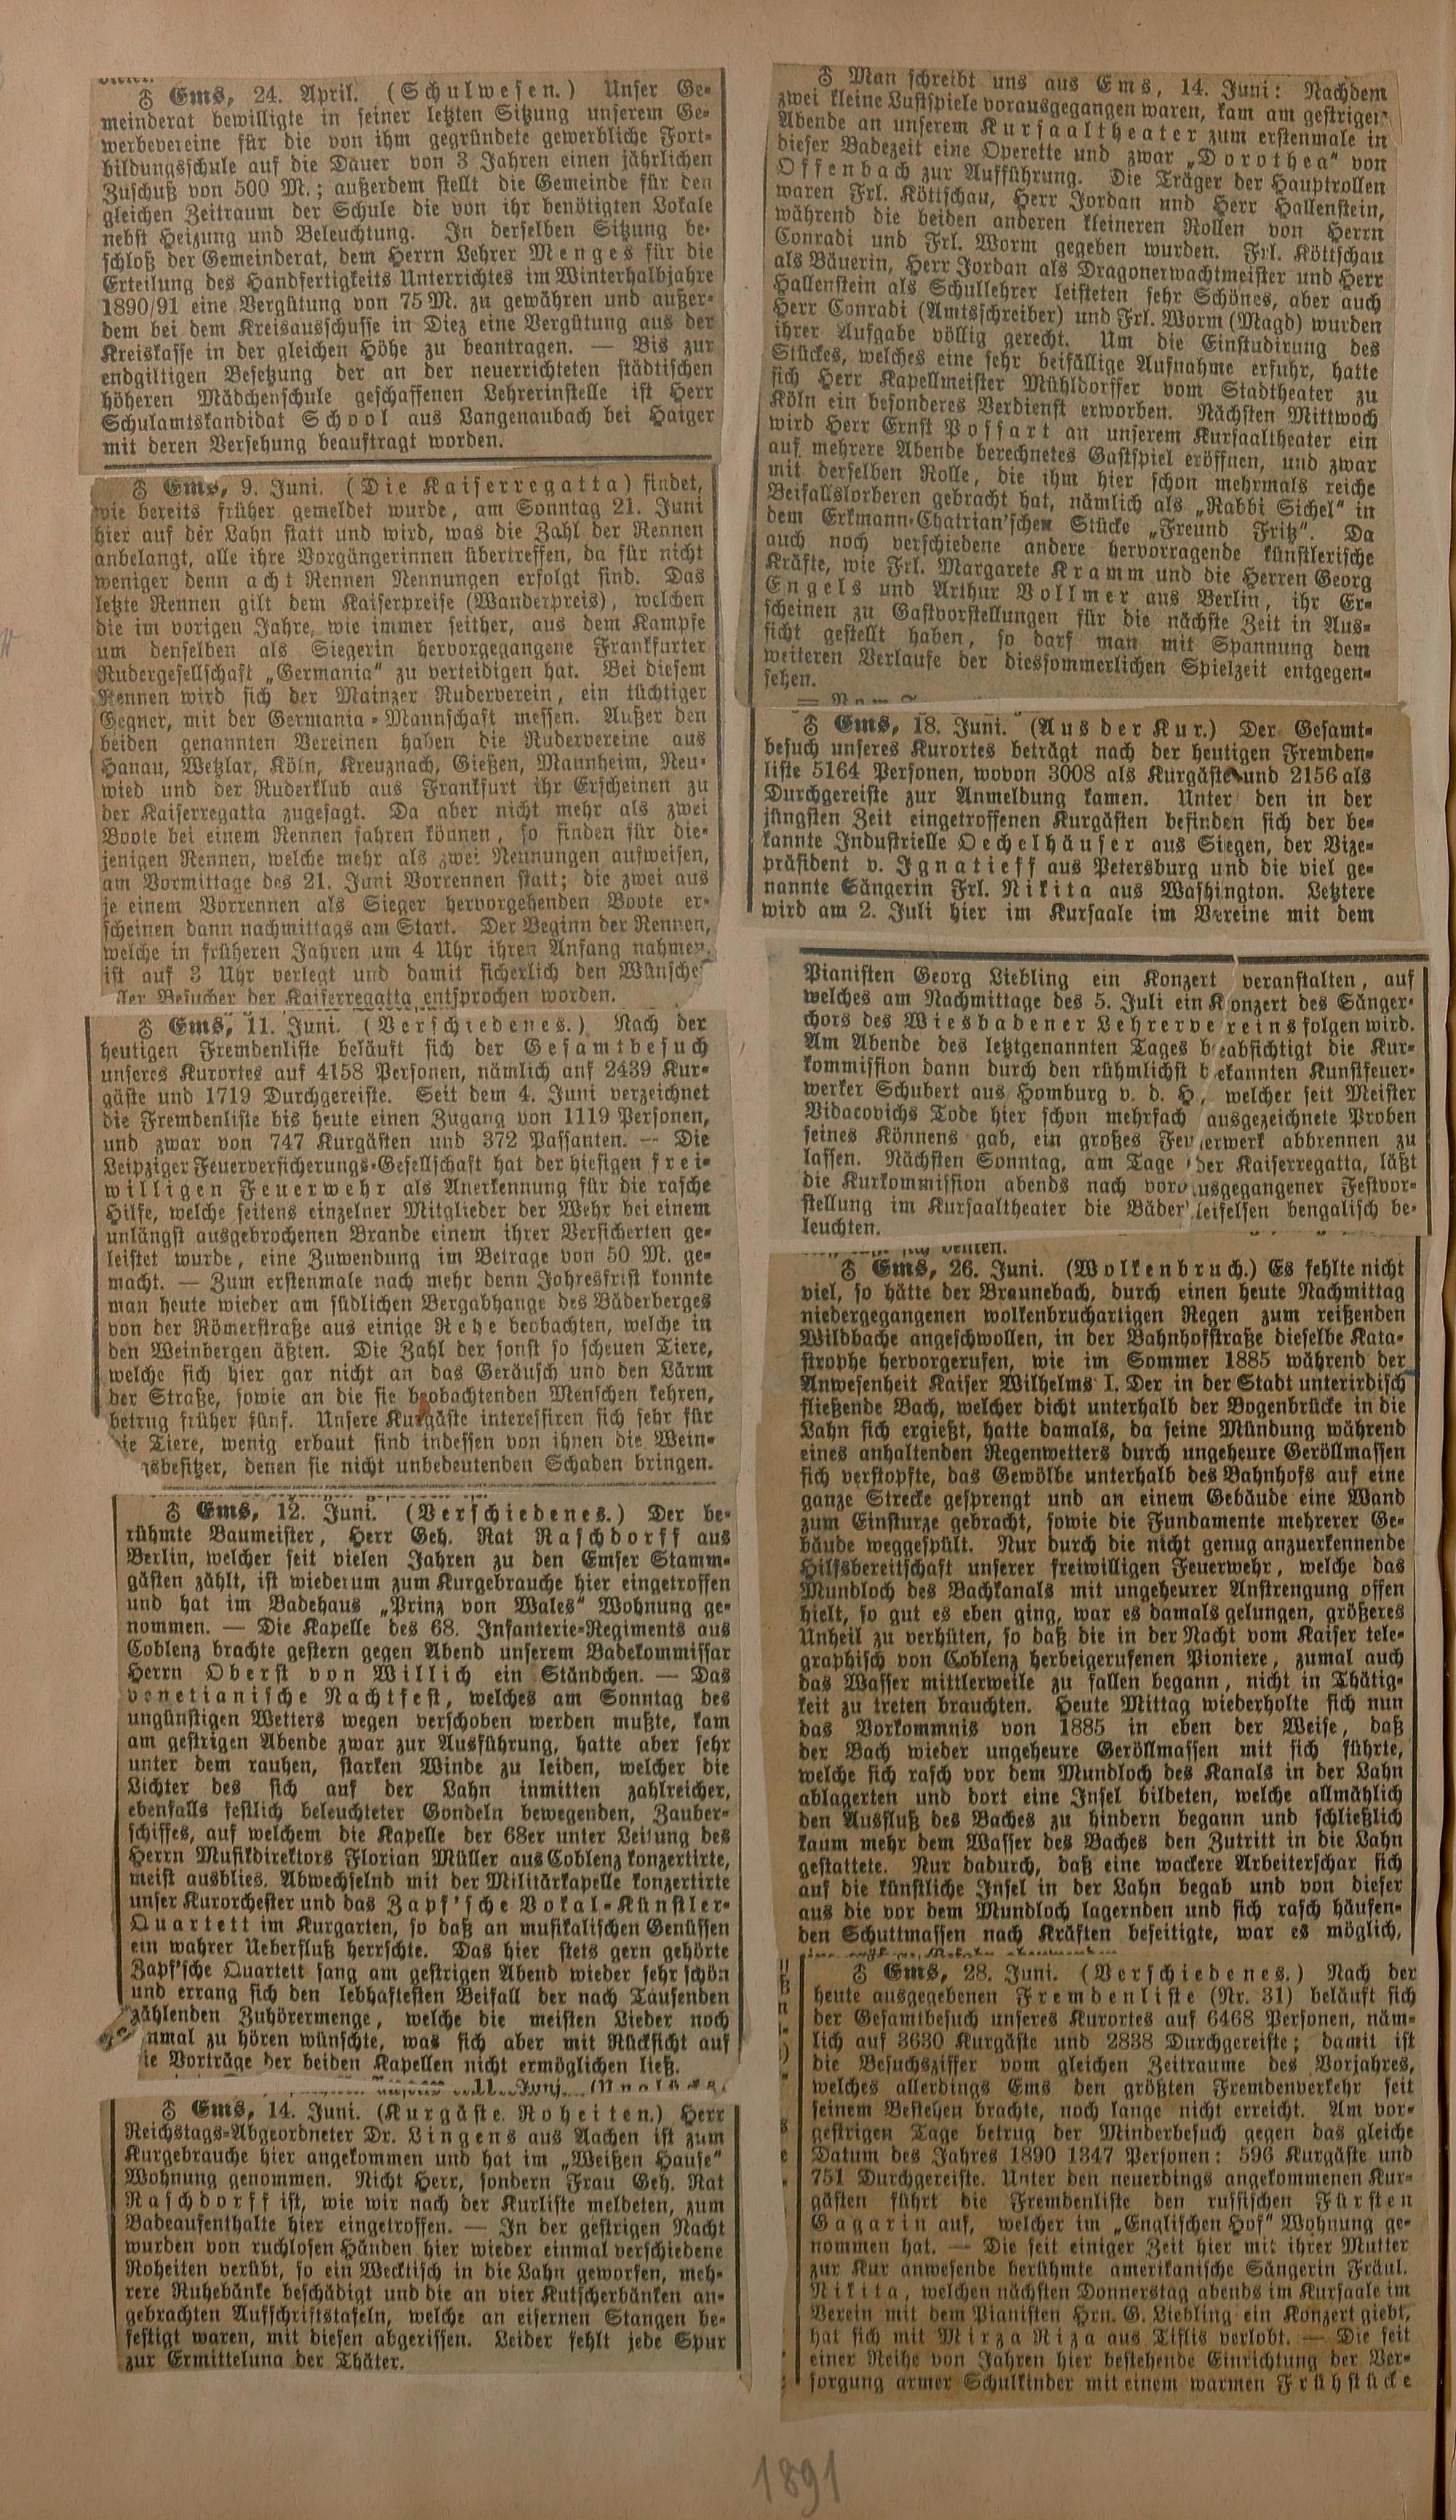 ♁ Ems, 24. April. (Schulwesen.) Unser Ge-
meinderat bewilligte in seiner letzten Sitzung unserem Ge-
werbevereine für die von ihm gegründete gewerbliche Fort-
bildungsschule auf die Dauer von 3 Jahren einen jährlichen
Zuschuß von 500 M.; außerdem stellt die Gemeinde für den
gleichen Zeitraum der Schule die von ihr benötigten Lokale
nebst Heizung und Beleuchtung. In derselben Sitzung be-
schloß der Gemeinderat, dem Herrn Lehrer Menges für die
Erteilung des Handfertigkeits Unterrichtes im Winterhalbjahre
1890/91 eine Vergütung von 75 M. zu gewähren und außer-
dem bei dem Kreisausschusse in Diez eine Vergütung aus der
Kreiskasse in der gleichen Höhe zu beantragen. — Bis zur
endgiltigen Besetzung der an der neuerrichteten städtischen
höheren Mädchenschule geschaffenen Lehrerinstelle ist Herr
Schulamtskandidat School aus Langenaubach bei Haiger
mit deren Versehung beauftragt worden.
♁ Ems, 9. Juni. (Die Kaiserregatta) findet,
wie bereits früher gemeldet wurde, am Sonntag 21. Juni
hier auf der Lahn statt und wird, was die Zahl der Rennen
anbelangt, alle ihre Vorgängerinnen übertreffen, da für nicht
weniger denn acht Rennen Nennungen erfolgt sind. Das
letzte Rennen gilt dem Kaiserpreise (Wanderpreis), welchen
die im vorigen Jahre, wie immer seither, aus dem Kampfe
um denselben als Siegerin hervorgegangene Frankfurter
Rudergesellschaft „Germania“ zu verteidigen hat. Bei diesem
Rennen wird sich der Mainzer Ruderverein, ein tüchtiger
Gegner, mit der Germania-Mannschaft messen. Außer den
beiden genannten Vereinen haben die Rudervereine aus
Hanau, Wetzlar, Köln, Kreuznach, Gießen, Mannheim, Neu-
wied und der Ruderklub aus Frankfurt ihr Erscheinen zu
der Kaiserregatta zugesagt. Da aber nicht mehr als zwei
Boote bei einem Rennen fahren können, so finden für die-
jenigen Rennen, welche mehr als zwei Nennungen aufweisen,
am Vormittage des 21. Juni Vorrennen statt; die zwei aus
je einem Vorrennen als Sieger hervorgehenden Boote er-
scheinen dann nachmittags am Start. Der Beginn der Rennen,
welche in früheren Jahren um 4 Uhr ihren Anfang nahmen,
ist auf 3 Uhr verlegt und damit sicherlich den Wünsche
der Besucher der Kaiserregatta entsprochen worden.
♁ Ems, 11. Juni. (Verschiedenes.) Nach der
heutigen Fremdenliste beläuft sich der Gesamtbesuch
unseres Kurortes auf 4158 Personen, nämlich auf 2439 Kur-
gäste und 1719 Durchgereiste. Seit dem 4. Juni verzeichnet
die Fremdenliste bis heute einen Zugang von 1119 Personen,
und zwar von 747 Kurgästen und 372 Passanten. — Die
Leipziger Feuerversicherungs-Gesellschaft hat der hiesigen frei-
willigen Feuerwehr als Anerkennung für die rasche
Hilfe, welche seitens einzelner Mitglieder der Wehr bei einem
unlängst ausgebrochenen Brande einem ihrer Versicherten ge-
leistet wurde, eine Zuwendung im Betrage von 50 M. ge-
macht. — Zum erstenmale nach mehr denn Jahresfrist konnte
man heute wieder am südlichen Bergabhange des Bäderberges
von der Römerstraße aus einige Rehe beobachten, welche in
den Weinbergen äßten. Die Zahl der sonst so scheuen Tiere,
welche sich hier gar nicht an das Geräusch und den Lärm
der Straße, sowie an die sie beobachtenden Menschen kehren,
betrug früher fünf. Unsere Kurgäste interessiren sich sehr für
die Tiere, wenig erbaut sind indessen von ihnen die Wein-
gsbesitzer, denen sie nicht unbedeutenden Schaden bringen.
♁ Ems, 12. Juni. (Verschiedenes.) Der be-
rühmte Baumeister, Herr Geh. Rat Raschdorff aus
Berlin, welcher seit vielen Jahren zu den Emser Stamm-
gästen zählt, ist wiederum zum Kurgebrauche hier eingetroffen
und hat im Badehaus „Prinz von Wales“ Wohnung ge-
nommen. — Die Kapelle des 68. Infanterie-Regiments aus
Coblenz brachte gestern gegen Abend unserem Badekommissar
Herrn Oberst von Willich ein Ständchen. — Das
venetianische Nachtfest, welches am Sonntag des
ungünstigen Wetters wegen verschoben werden mußte, kam
am gestrigen Abende zwar zur Ausführung, hatte aber sehr
unter dem rauhen, starken Winde zu leiden, welcher die
Lichter des sich auf der Lahn inmitten zahlreicher,
ebenfalls festlich beleuchteter Gondeln bewegenden, Zauber-
schiffes, auf welchem die Kapelle der 68er unter Leitung des
Herrn Musikdirektors Florian Müller aus Coblenz konzertirte,
meist ausblies. Abwechselnd mit der Militärkapelle konzertirte
unser Kurorchester und das Zapf'sche Vokal-Künstler-
Quartett im Kurgarten, so daß an musikalischen Genüssen
ein wahrer Ueberfluß herrschte. Das hier stets gern gehörte
Zapf'sche Quartett sang am gestrigen Abend wieder sehr schön
und errang sich den lebhaftesten Beifall der nach Tausenden
zählenden Zuhörermenge, welche die meisten Lieder noch
nmal zu hören wünschte, was sich aber mit Rücksicht auf
ie Vorträge der beiden Kapellen nicht ermöglichen ließ.
♁ Ems, 14. Juni. (Kurgäste. Roheiten.) Herr
Reichstags-Abgeordneter Dr. Lingens aus Aachen ist zum
Kurgebrauche hier angekommen und hat im „Weißen Hause“
Wohnung genommen. Nicht Herr, sondern Frau Geh. Rat
Raschdorff ist, wie wir nach der Kurliste meldeten, zum
Badeaufenthalte hier eingetroffen. — In der gestrigen Nacht
wurden von ruchlosen Händen hier wieder einmal verschiedene
Roheiten verübt, so ein Wecktisch in die Lahn geworfen, meh-
rere Ruhebänke beschädigt und die an vier Kutscherbänken an-
gebrachten Aufschriftstafeln, welche an eisernen Stangen be-
festigt waren, mit diesen abgerissen. Leider fehlt jede Spur
zur Ermittelung der Thäter.
♁ Man schreibt uns aus Ems, 14. Juni: Nachdem
zwei kleine Lustspiele vorausgegangen waren, kam am gestrigen
Abende an unserem Kursaaltheater zum erstenmale in
dieser Badezeit eine Operette und zwar „Dorothea“ von
Offenbach zur Aufführung. Die Träger der Hauptrollen
waren Frl. Köttschau, Herr Jordan und Herr Hallenstein,
während die beiden anderen kleineren Rollen von Herrn
Conradi und Frl. Worm gegeben wurden. Frl. Köttschau
als Bäuerin, Herr Jordan als Dragonerwachtmeister und Herr
Hallenstein als Schullehrer leisteten sehr Schönes, aber auch
Herr Conradi (Amtsschreiber) und Frl. Worm (Magd) wurden
ihrer Aufgabe völlig gerecht. Um die Einstudirung des
Stückes, welches eine sehr beifällige Aufnahme erfuhr, hatte
sich Herr Kapellmeister Mühldorffer vom Stadttheater zu
Köln ein besonderes Verdienst erworben. Nächsten Mittwoch
wird Herr Ernst Possart an unserem Kursaaltheater ein
auf mehrere Abende berechnetes Gastspiel eröffnen, und zwar
mit derselben Rolle, die ihm hier schon mehrmals reiche
Beifallslorberen gebracht hat, nämlich als „Rabbi Sichel“ in
dem Erkmann-Chatrian'schen Stücke „Freund Fritz“. Da
auch noch verschiedene andere hervorragende künstlerische
Kräfte, wie Frl. Margarete Kramm und die Herren Georg
Engels und Arthur Vollmer aus Berlin, ihr Er-
scheinen zu Gastvorstellungen für die nächste Zeit in Aus-
sicht gestellt haben, so darf man mit Spannung dem
weiteren Verlaufe der diessommerlichen Spielzeit entgegen-
sehen.
♁ Ems, 18. Juni. (Aus der Kur.) Der Gesamt-
besuch unseres Kurortes beträgt nach der heutigen Fremden-
liste 5164 Personen, wovon 3008 als Kurgäste und 2156 als
Durchgereiste zur Anmeldung kamen. Unter den in der
jüngsten Zeit eingetroffenen Kurgästen befinden sich der be-
kannte Industrielle Oechelhäuser aus Siegen, der Vize-
präsident v. Ignatieff aus Petersburg und die viel ge-
nannte Sängerin Frl. Nikita aus Washington. Letztere
wird am 2. Juli hier im Kursaale im Vereine mit dem
Pianisten Georg Liebling ein Konzert veranstalten, auf
welches am Nachmittage des 5. Juli ein Konzert des Sänger-
chors des Wiesbadener Lehrervereins folgen wird.
Am Abende des letztgenannten Tages beabsichtigt die Kur-
kommission dann durch den rühmlichst bekannten Kunstfeuer-
werker Schubert aus Homburg v. d. H, welcher seit Meister
Vidacovichs Tode hier schon mehrfach ausgezeichnete Proben
seines Könnens gab, ein großes Feuerwerk abbrennen zu
lassen. Nächsten Sonntag, am Tage der Kaiserregatta, läßt
die Kurkommission abends nach vorausgegangener Festvor-
stellung im Kursaaltheater die Bäderleifelsen bengalisch be-
leuchten.
♁ Ems, 26. Juni. (Wolkenbruch.) Es fehlte nicht
viel, so hätte der Braunebach, durch einen heute Nachmittag
niedergegangenen wolkenbruchartigen Regen zum reißenden
Wildbache angeschwollen, in der Bahnhofstraße dieselbe Kata-
strophe hervorgerufen, wie im Sommer 1885 während der
Anwesenheit Kaiser Wilhelms I. Der in der Stadt unterirdisch
fließende Bach, welcher dicht unterhalb der Bogenbrücke in die
Lahn sich ergießt, hatte damals, da seine Mündung während
eines anhaltenden Regenwetters durch ungeheure Geröllmassen
sich verstopfte, das Gewölbe unterhalb des Bahnhofs auf eine
ganze Strecke gesprengt und an einem Gebäude eine Wand
zum Einsturze gebracht, sowie die Fundamente mehrerer Ge-
bäude weggespült. Nur durch die nicht genug anzuerkennende
Hilfsbereitschaft unserer freiwilligen Feuerwehr, welche das
Mundloch des Bachkanals mit ungeheurer Anstrengung offen
hielt, so gut es eben ging, war es damals gelungen, größeres
Unheil zu verhüten, so daß die in der Nacht vom Kaiser tele-
graphisch von Coblenz herbeigerufenen Pioniere, zumal auch
das Wasser mittlerweile zu fallen begann, nicht in Thätig-
keit zu treten brauchten. Heute Mittag wiederholte sich nun
das Vorkommnis von 1885 in eben der Weise, daß
der Bach wieder ungeheure Geröllmassen mit sich führte,
welche sich rasch vor dem Mundloch des Kanals in der Lahn
ablagerten und dort eine Insel bildeten, welche allmählich
den Ausfluß des Baches zu hindern begann und schließlich
kaum mehr dem Wasser des Baches den Zutritt in die Lahn
gestattete. Nur dadurch, daß eine wackere Arbeiterschar sich
auf die künstliche Insel in der Lahn begab und von dieser
aus die vor dem Mundloch lagernden und sich rasch häufen-
den Schuttmassen nach Kräften beseitigte, war es möglich,
♁ Ems, 28. Juni. (Verschiedenes.) Nach der
heute ausgegebenen Fremdenliste (Nr. 31) beläuft sich
der Gesamtbesuch unseres Kurortes auf 6468 Personen, näm-
lich auf 3630 Kurgäste und 2838 Durchgereiste; damit ist
die Besuchsziffer vom gleichen Zeitraume des Vorjahres,
welches allerdings Ems den größten Fremdenverkehr seit
seinem Bestehen brachte, noch lange nicht erreicht. Am vor-
gestrigen Tage betrug der Minderbesuch gegen das gleiche
Datum des Jahres 1890 1347 Personen: 596 Kurgäste und
751 Durchgereiste. Unter den neuerdings angekommenen Kur-
gästen führt die Fremdenliste den russischen Fürsten
Gagarin auf, welcher im „Englischen Hof“ Wohnung ge-
nommen hat. — Die seit einiger Zeit hier mit ihrer Mutter
zur Kur anwesende berühmte amerikanische Sängerin Fräul.
Nikita, welchen nächsten Donnerstag abends im Kursaale im
Verein mit dem Pianisten Hrn. G. Liebling ein Konzert giebt,
hat sich mit Mirza Riza aus Tiflis verlobt. — Die seit
einer Reihe von Jahren hier bestehende Einrichtung der Ver-
sorgung armer Schulkinder mit einem warmen Frühstücke
1891